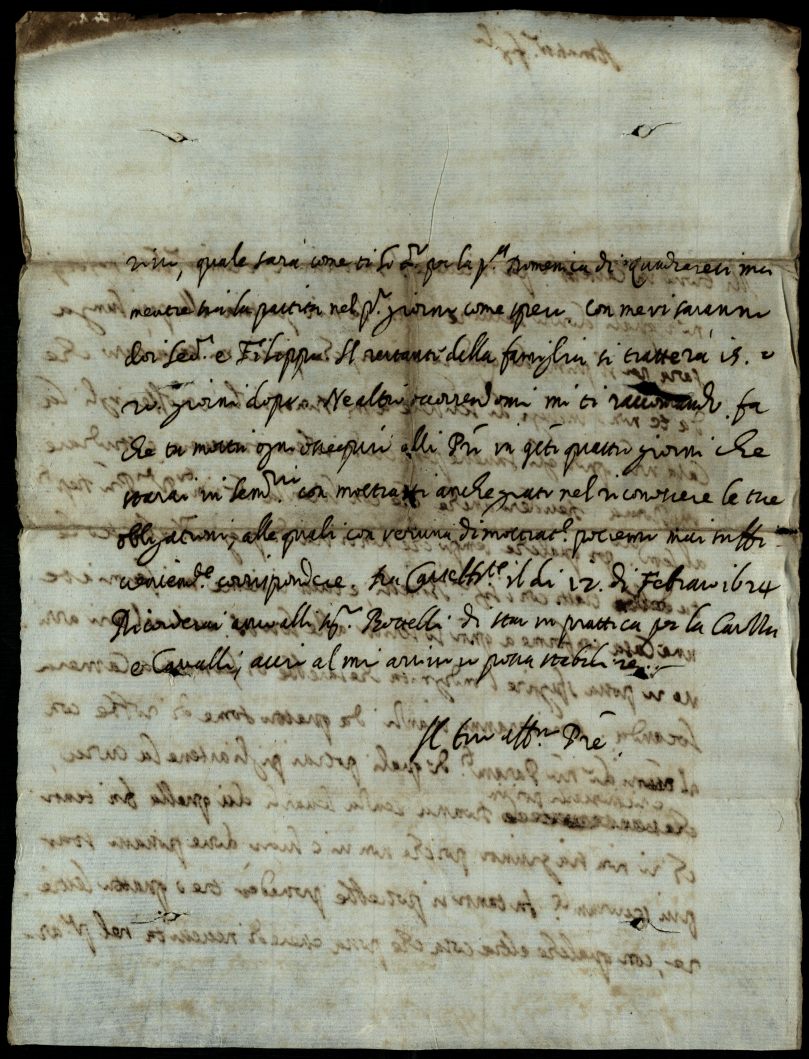 rivo, quale sarà come ti hò d.º per la p.ª Domenica di Quadragesima
mentre sia la partita nel p.º giorno come spero. con me vi saranno
doi Sed.ⁱ e Filippo. Il restante della famiglia si tratterà 15. o
giorni dopo. Ne altro occorrendomi mi ti raccomando. fa
che tu mostri ogni ossequio alli Prī in q̃ti quattro giorni che
starai in Sem.rio con mostrarti anche grato nel riconoscere le tue
obbligationi, alle quali con veruna dimostrat.e potiemo mai suffi-
cientem.te corrispondere. il di 12. di Febraro 1624
Ricorderai anco alli Sig.ri di star in prattica per la Carozza
e Cavalli, acciò al mio arrivo si possa stabilire.
Il tuo aff.mo Prē